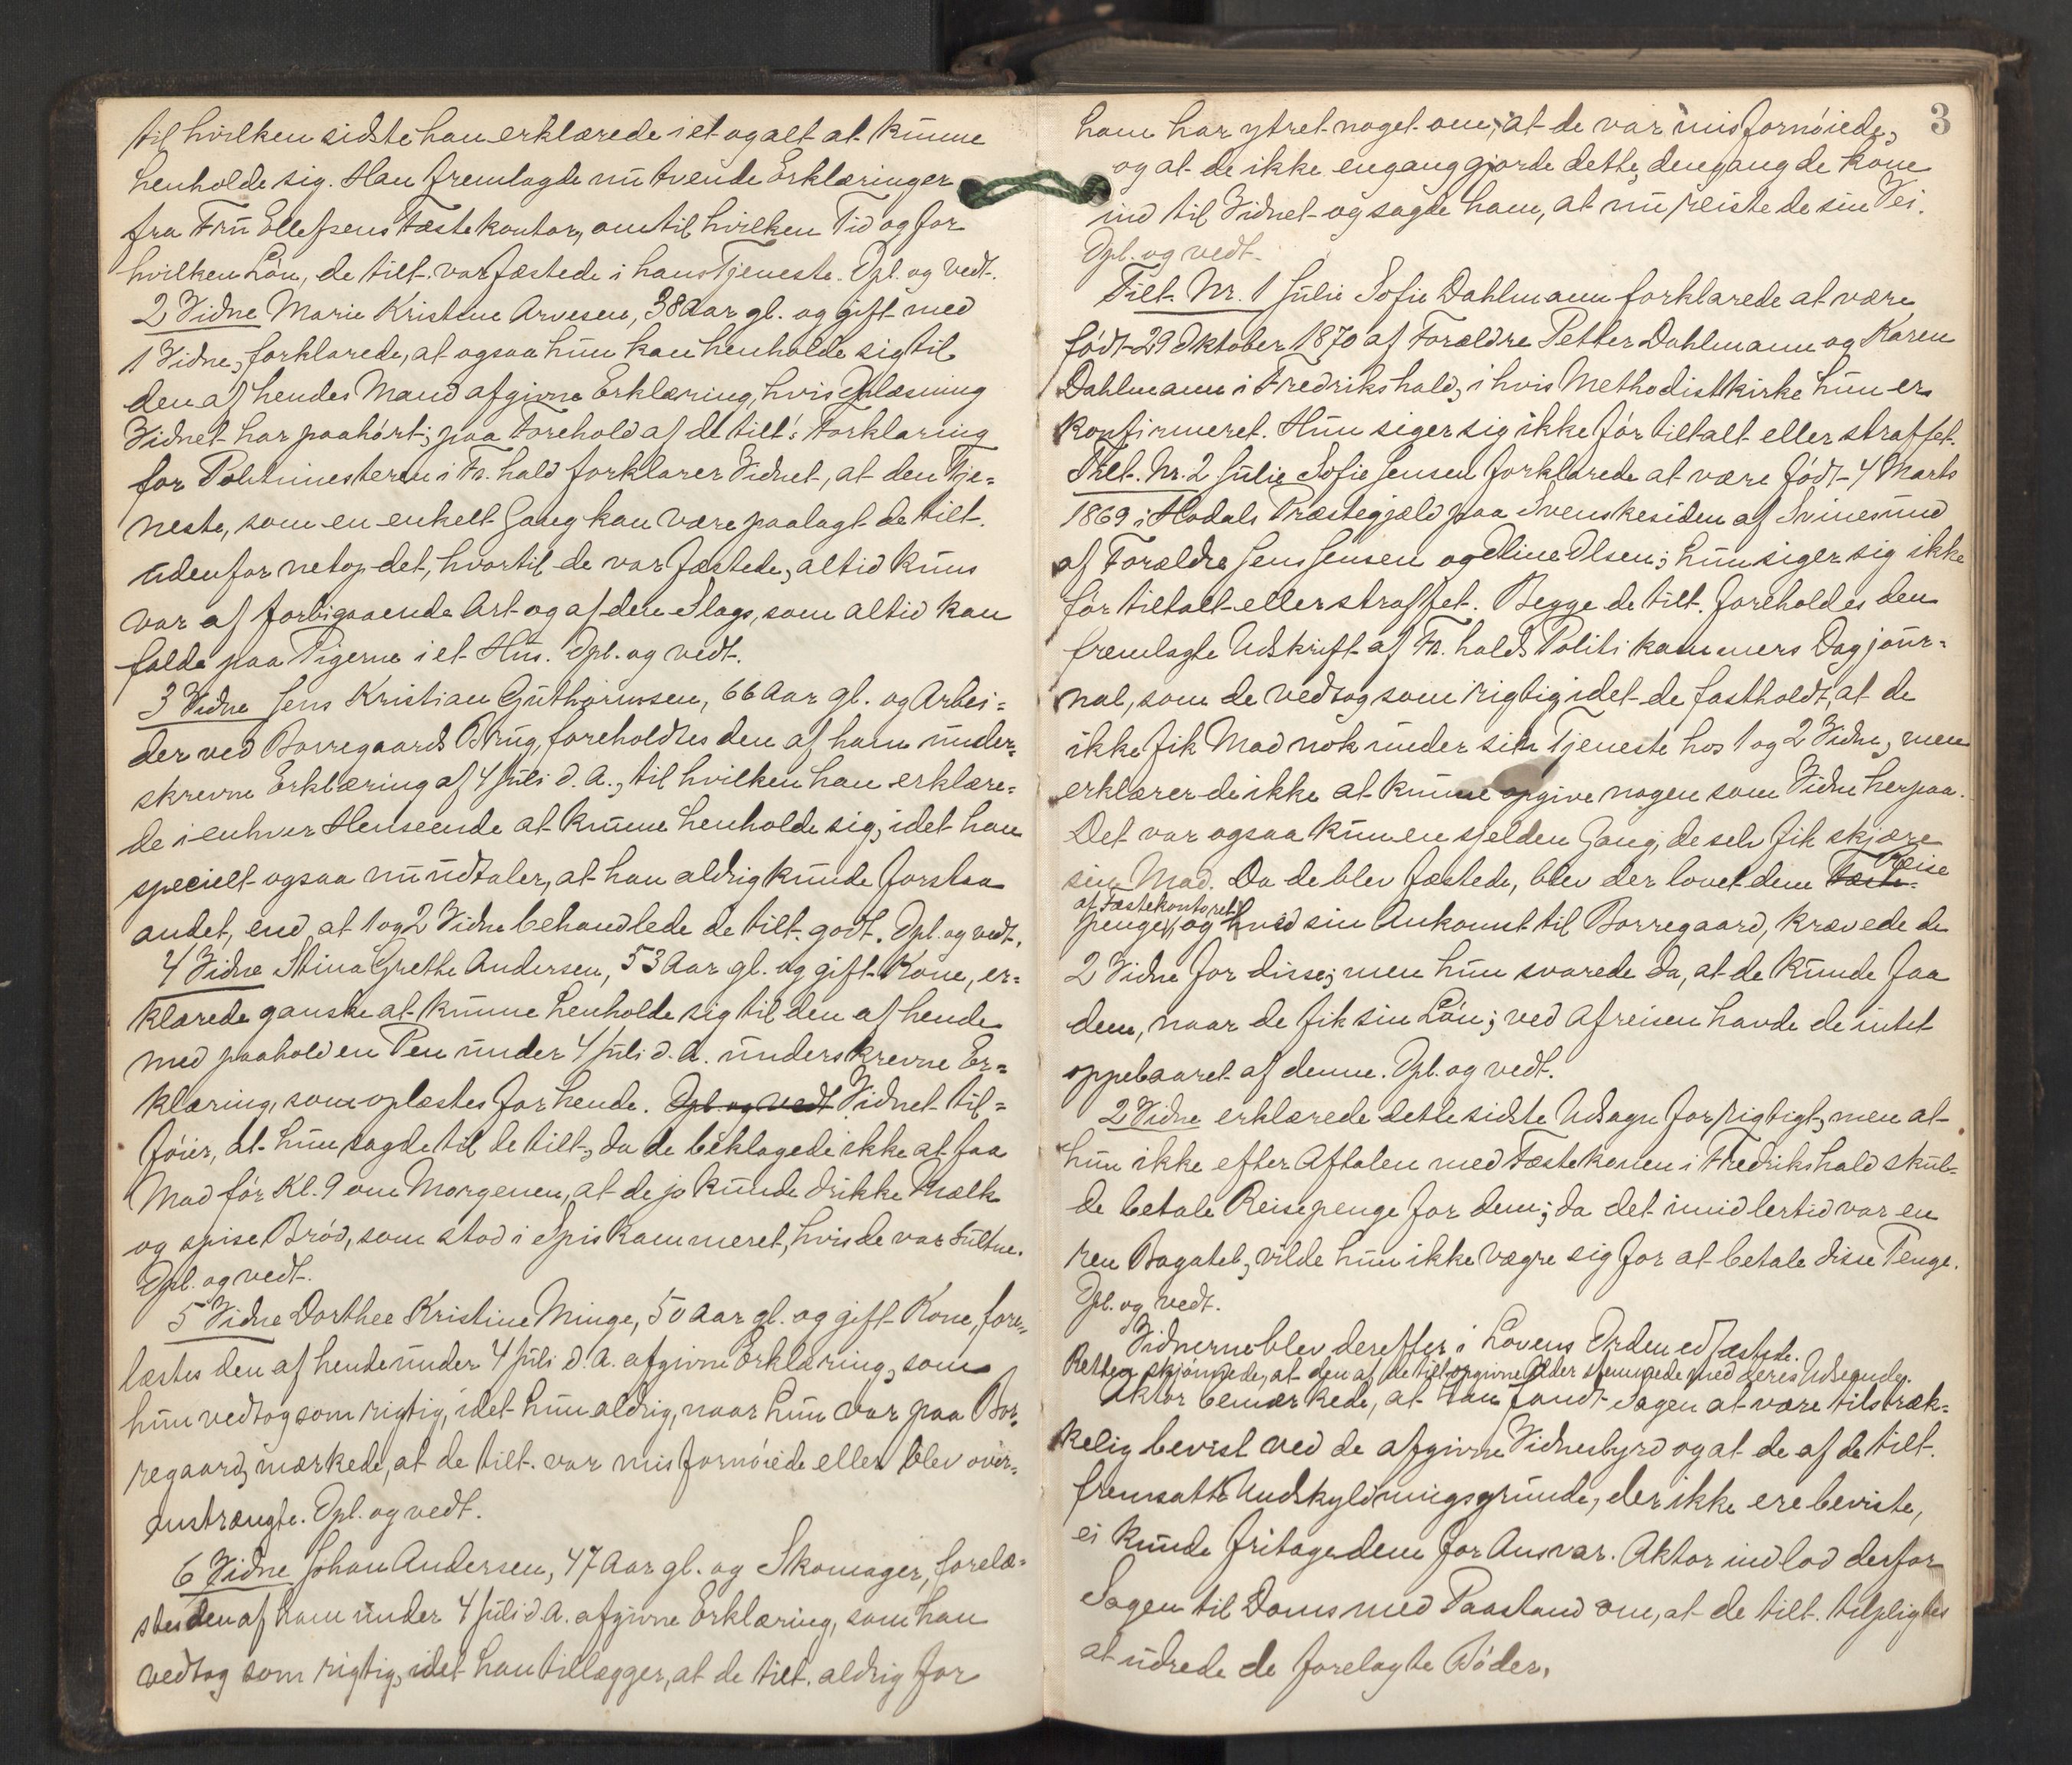 til hvilken sidste han erklærede i et og alt at kunne
henholde sig. Han fremlagde nu tvende Erklæringer
fra Fru Ellefsens Fæstekontor, om til hvilken Tid og for
hvilken Løn, de tilt. var fæstede i hans Tjeneste. Opl. og vedt.
2 Vidne Marie Kristine Arvesen, 38 Aar gl. og gift med
1 Vidne, forklarede, at ogsaa hun kan henholde sig til
den af hendes Mand afgivne Erklæring, hvis Oplæsning
Vidnet har paahørt; paa Forehold af de tilt's Forklaring
for Politimesteren i Fr.hald forklarer Vidnet, at den Tje=
neste, som en enkelt Gang kan være paalagt de tilt.
udenfor netop det, hvortil de var fæstede, altid kuns
var af forbigaaende Art og af den Slags, som altid kan
falde paa Pigerne i et Hus. Opl. og vedt.
3 Vidne Jens Kristian Guthormsen, 66 Aar gl. og Arbei=
der ved Borregaards Brug, foreholdtes den af ham under=
skrevne Erklæring af 4 Juli d. A., til hvilken han erklære=
de i enhver Henseende at kunne henholde sig, idet han
specielt ogsaa nu udtaler, at han aldrig kunde forstaa
andet, end at 1 og 2 Vidne behandlede de tilt. godt. Opl. og vedt.
4 Vidne Stina Grethe Andersen, 53 Aar gl. og gift Kone, er=
klærede ganske at kunne henholde sig til den af hende
med paaholden Pen under 4 Juli d. A. underskrevne Er=
klæring, som oplæstes for hende. Opl. og vedt. Vidnet til=
føier, at hun sagde til de tilt., da de beklagede ikke at faa
Mad før Kl. 9 om Morgenen, at de jo kunde drikke Mælk
og spise Brød, som stod i Spiskammeret, hvis de var sultne.
Opl. og vedt.
5 Vidne Dorthee Kristine Minge, 50 Aar gl. og gift Kone, fore=
læstes den af hende under 4 Juli d. A. afgivne Erklæring, som
hun vedtog som rigtig, idet hun aldrig, naar hun var paa Bor=
regaard, mærkede, at de tilt. var misfornøiede eller blev over=
anstrængte. Opl. og vedt.
6 Vidne Johan Andersen, 47 Aar gl. og Skomager, forelæ=
stes den af ham under 4 Juli d A. afgivne Erklæring, som han
vedtog som rigtig, idet han tillægger, at de tilt. aldrig for
3
ham har ytret noget om, at de var misfornøiede,
og at de ikke engang gjorde dette, dengang de kom
ind til Vidnet og sagde ham, at nu reiste de sin Vei.
Opl. og vedt.
Tilt. Nr. 1 Julie Sofie Dahlmann forklarede at være
født 29 Oktober 1870 af Forældre Petter Dahlmann og Karen
Dahlmann i Fredrikshald, i hvis Methodistkirke hun er
konfirmeret. Hun siger sig ikke før tiltalt eller straffet.
Tilt. Nr. 2 Julie Sofie Jensen forklarede at være født 4 Marts
1869 i Hodals Præstegjæld paa Svenskesiden af Svinesund
af Forældre Jens Jensen og Oline Olsen; hun siger sig ikke
før tiltalt eller straffet. Begge de tilt. foreholdes den
fremlagte Udskrift af Fr.halds Politikammers Dagjour=
nal, som de vedtog som rigtig idet de fastholdt, at de
ikke fik Mad nok under sin Tjeneste hos 1 og 2 Vidne, men
erklærer de ikke at kunne opgive nogen som Vidne herpaa.
Det var ogsaa kun en sjelden Gang, de selv fik skjære
sin Mad. Da de blev fæstede, blev der lovet dem Reise
af Fæstekontoret
penge, og ved sin Ankomst til Borregaard, krævede de
2 Vidne for disse; men hun svarede da, at de kunde faa
dem, naar de fik sin Løn; ved Afreisen havde de intet
oppebaaret af denne. Opl. og vedt.
2 Vidne erklærede dette sidste Udsagn for rigtigt, men at
hun ikke efter Aftalen med Fæstekonen i Fredrikshald skul=
de betale Reisepenge for dem; da det imidlertid var en
ren Bagatel, vilde hun ikke vægre sig for at betale disse Penge.
Opl. og vedt.
Vidnerne blev derefter i Lovens Orden edfæstede.
Retten skjønnede, at den af de tilt. opgivne Alder stemmede med deres Udseende.
Aktor bemærkede, at han fandt Sagen at være tilstræk=
kelig bevist ved de afgivne Vidnesbyrd og at de af de tilt.
fremsatte Undskyldningsgrunde, der ikke ere beviste,
ei kunde fritage dem for Ansvar. Aktor indlod derfor
Sagen til Doms med Paastand om, at de tilt. tilpligtes
at udrede de forelagte Bøder.